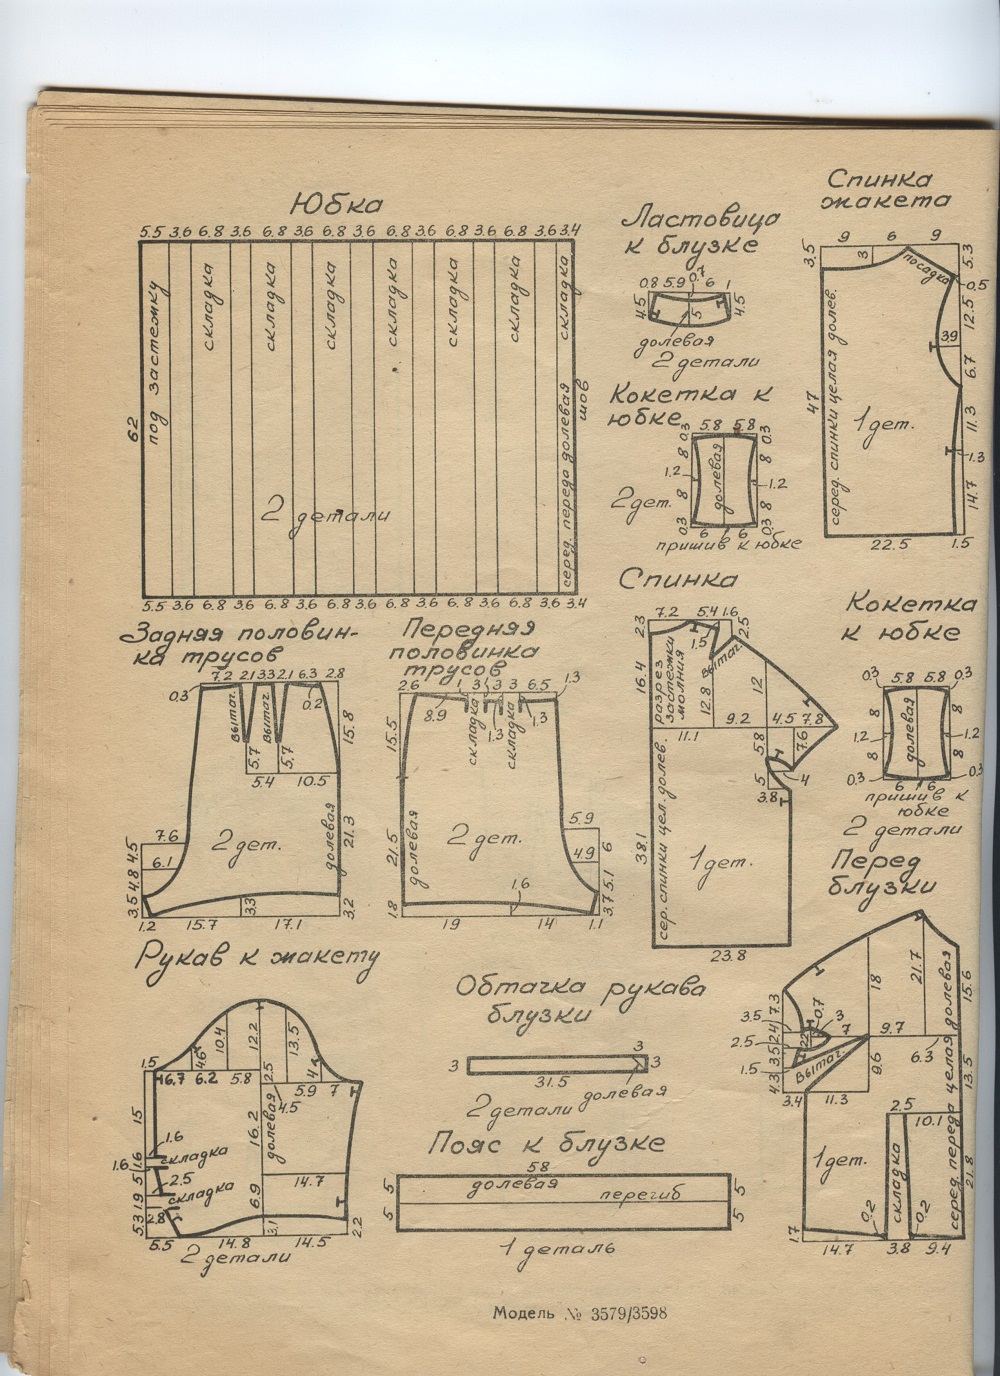 Юбка
5.5 3.6 6.8 3.6 6.8 3.6 6.8 3.6 6.8 3.6 6.8 3.6 6.8 3.6 3.4
под застежку
складка
складка
складка
складка
складка
складка
складка
62
2 детали
серед. переда долевая
шов
5.5 3.6 6.8 3.6 6.8 3.6 6.8 3.6 6.8 3.6 6.8 3.6 6.8 3.6 3.4
Ластовица
к блузке
0.8 5.9 0.7 6 1
4.5 5 4.5
долевая
2 детали
Спинка
жакета
9 6 9
3.5 3 посадка 5.3
0.5
12.5
3.9
6.7
47
серед. спинки целая долев.
1 дет.
11.3
1.3
14.7
22.5 1.5
Кокетка к
юбке
0.3 5.8 5.8 0.3
8 8
1.2 долевая 1.2
2 дет. 8 8
0.3 6 6 0.3
пришив к юбке
Задняя половин-
ка трусов
7.2 2.1 3.3 2.1 6.3 2.8
0.3 0.2
вытач.
вытач.
15.8
5.7 5.7
5.4 10.5
7.6
4.5
6.1
4.8
2 дет.
долевая
21.3
3.5
3.3
3.2
1.2 15.7 17.1
Передняя
половинка
трусов
2.6 1 3 3 3 6.5 1.3
8.9
складка
1.3
складка
1.3
15.5
21.5
долевая
2 дет.
5.9
4.9 6
5.1
1.6
1.8 3.7
19 14 1.1
Спинка
7.2 5.4 1.6
2.3 1.5 2.5
16.4
разрез
застежки
молния
вытач.
12.8
12
9.2 4.5 7.8
11.1
5.8 7.6
5 4
3.8
38.1
сер. спинки цел. долев.
1 дет.
23.8
Кокетка
к юбке
0.3 5.8 5.8 0.3
8 8
1.2 долевая 1.2
8 8
0.3 6 6 0.3
пришив к
юбке
2 детали
Рукав к жакету
1.5 4.6 10.4 12.2 13.5 4
16.7 6.2 5.8 2.5 5.9 7
4.5
15
16.2
долевая
1.6
1.6 1.6 складка
5 2.5
складка
1.9
14.7
6.9
5.3 2.8
3.1
2.2
5.5 14.8 14.5
2 детали
Обтачка рукава
блузки
3
3 3
31.5
долевая
2 детали
Пояс к блузке
58
5 долевая 5
перегиб
5 5
1 деталь
Перед
блузки
21.7
18
15.6
7.3
3.5 0.7 3
2.4 7 9.7
2.5 6.3
3.5
1.5 вытач.
9.6
4.3
13.5
3.4 11.3
2.5
10.1
1 дет.
складка
серед. переда целая долевая
21.8
0.2 0.2
1.7
14.7 3.8 9.4
Модель № 3579/3598